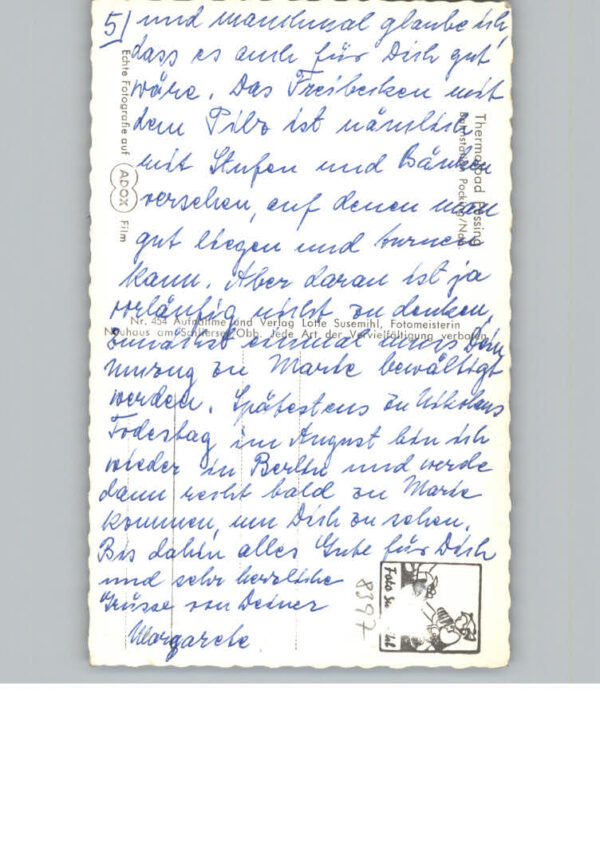 5) und manchmal glaube ich,
dass es auch für Dich gut
wäre. Das Freibecken mit
dem Pilz ist nämlich
mit Stufen und Bänken
versehen, auf denen man
gut liegen und turnen
kann. Aber daran ist ja
vorläufig nicht zu denken,
zunächst einmal muss Dein
Umzug zu Marie bewältigt
werden. Spätestens zu Nikolaus
Todestag im August bin ich
wieder in Berlin und werde
dann recht bald zu Marie
kommen, um Dich zu sehen.
Bis dahin alles Gute für Dich
und sehr herzliche
Grüsse von Deiner
Margarete
Echte Fotografie auf ADOX Film
Thermalbad Füssing
Bahnstation Pocking/Ndb.
Nr. 454 Aufnahme und Verlag Lotte Susemihl, Fotomeisterin
Neuhaus am Schliersee/Obb. Jede Art der Vervielfältigung verboten
Foto Su
8397